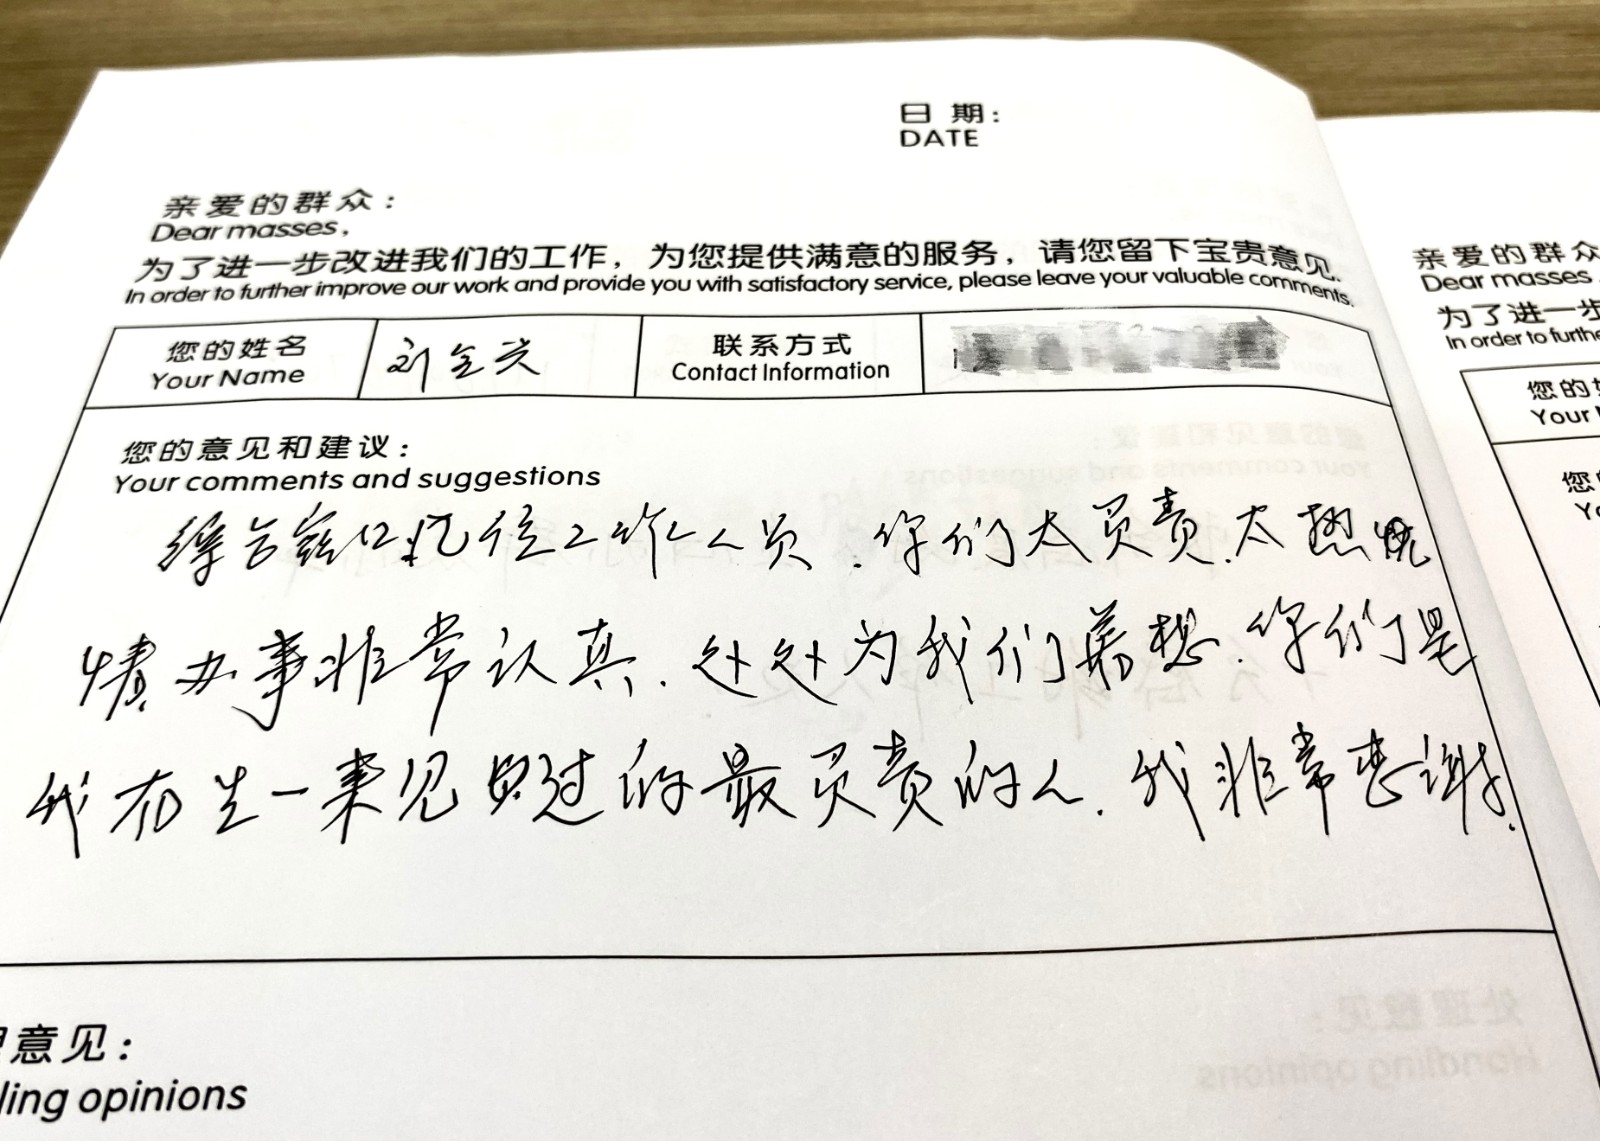 日 期：
DATE
亲爱的群众：
Dear masses,
为了进一步改进我们的工作，为您提供满意的服务，请您留下宝贵意见.
In order to further improve our work and provide you with satisfactory service, please leave your valuable comments.
您的姓名
Your Name
刘全兴
联系方式
Contact Information
您的意见和建议：
Your comments and suggestions
综合窗口几位工作人员.你们太负责.太热
情办事非常认真.处处为我们着想.你们是
我有生一来见过的最负责的人.我非常感谢.
意见：
ling opinions
亲爱的群众
Dear masses
为了进一步
In order to furthe
您的
Your
您